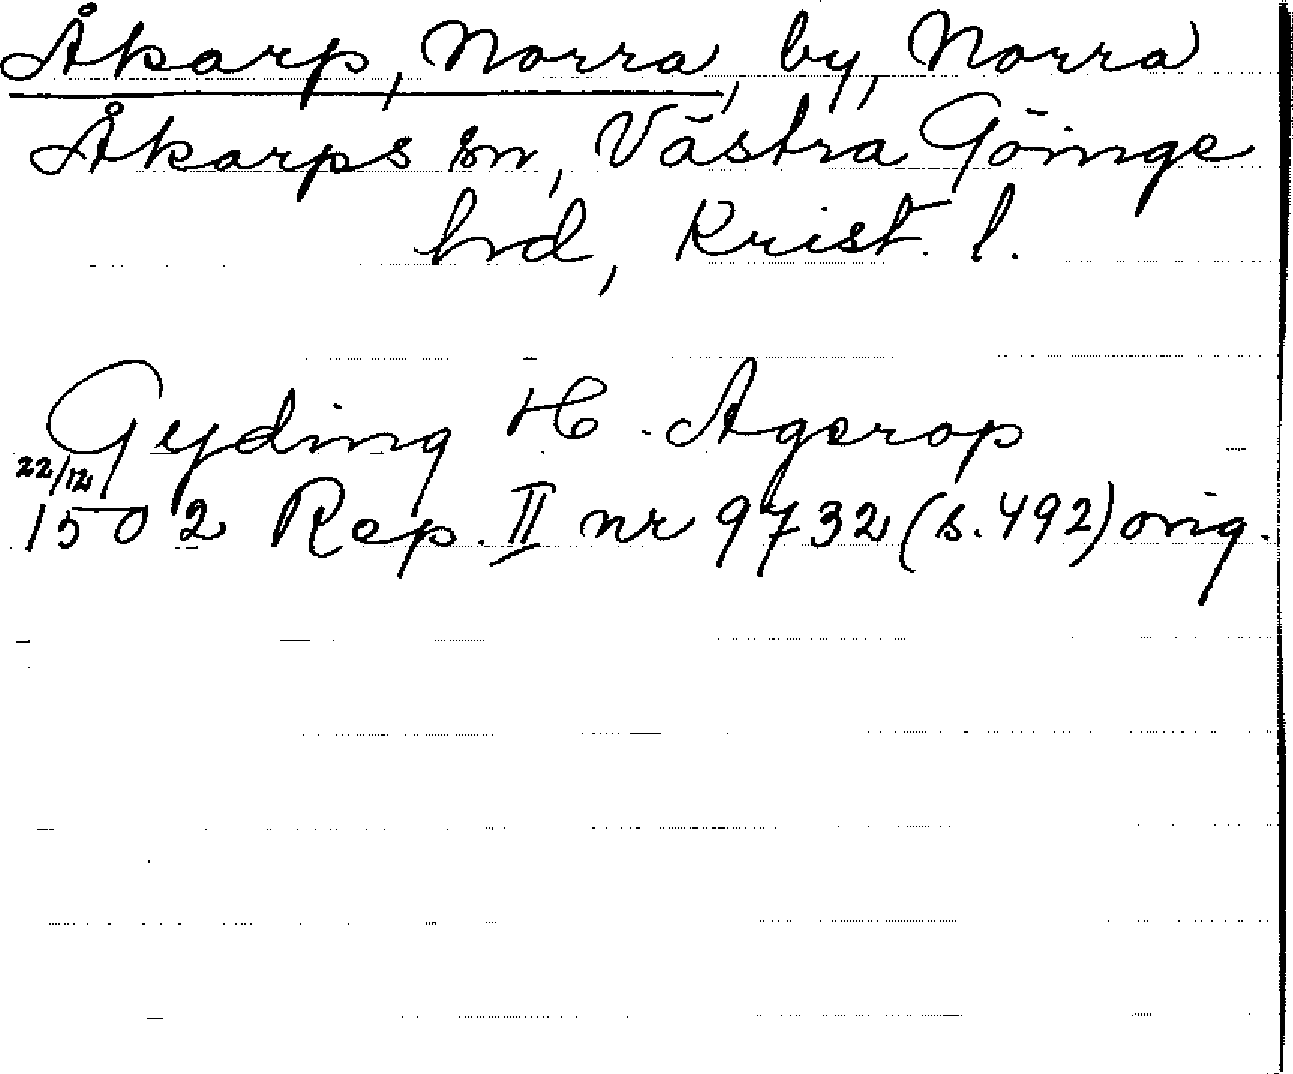 Åkarp, Norra, by, Norra
Åkarps sn, Västra Göinge
hrd, Krist. l.
Gyding H. Agerop
22/12
1502 Rep. II nr 9732 (s. 492) orig.